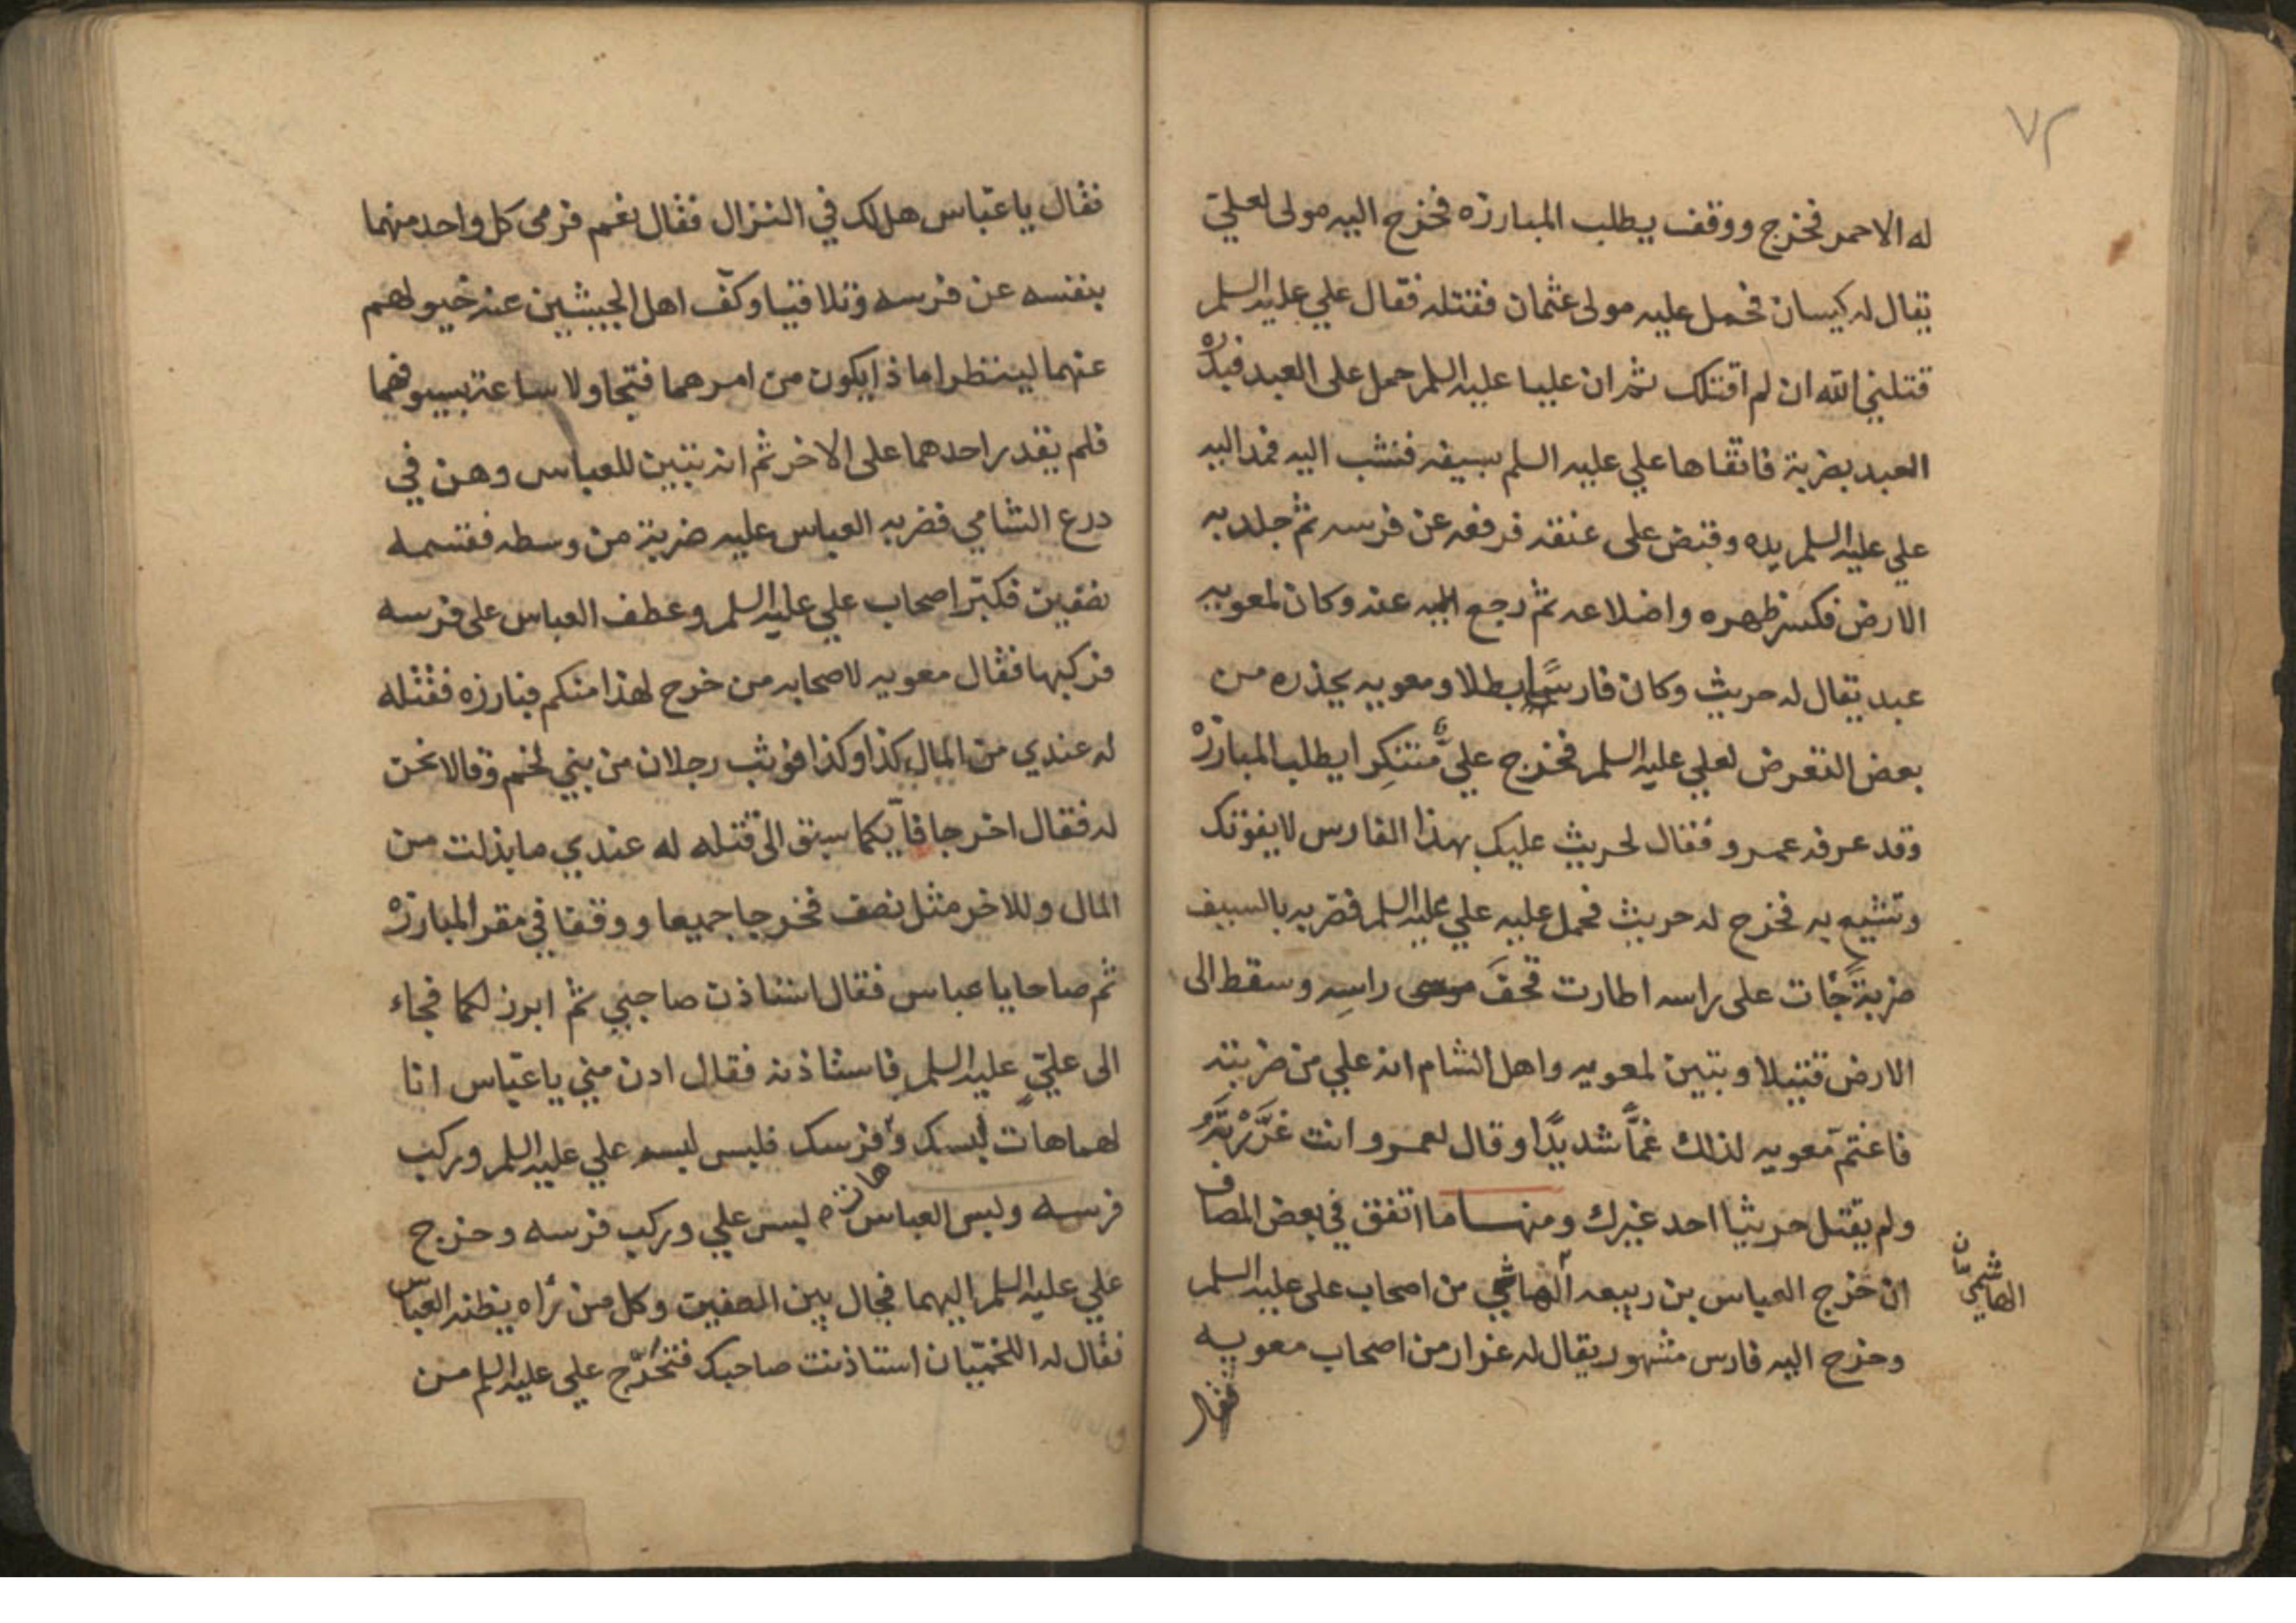 ٧٢
له الاحمر فخرج ووقف يطلب المبارزه فخرج اليه مولى لعلي
يقال له كيسان فحمل عليه مولى عثمان فقتله فقال علي عليه السلم
قتلني الله ان لم اقتلك ثم ان عليا عليه السلم حمل على العبد فبدره
العبد بضربة فاتقاها علي عليه السلم بسيفه فنشب اليه فمد اليه
علي عليه السلم يده وقبض على عنقه فرفعه عن فرسه ثم جلد به
الارض فكسر ظهره واضلاعه ثم رجع عنه وكان لمعويه
عبد يقال له حريث وكان فارسًا بطلا ومعويه يحذره من
بعض التعرض لعلي عليه السلم فخرج عليٌّ متنكِرا يطلب المبارزه
وقد عرفه عمرو فقال لحريث عليك بهذا الفارس لا يفوتك
وتشيع به فخرج له حريث فحمل عليه علي عليه السلم فضربه بالسيف
ضربةً جات على راسه اطارت قحفَ راسِه وسقط الى
الارض قتيلا وتبين لمعويه واهل الشام انه علي من ضربته
فاغتم معويه لذلك غمًّا شديدًا وقال لعمرو انت غرَّرْتَه
ولم يقتل حريثا احد غيرك ومنها ما اتفق في بعض المصاف
ان خرج العباس بن ربيعه الهاشمي من اصحاب على عليه السلم
الهاشميان
وخرج اليه فارس مشهور يقال له غرار من اصحاب معويه
فقال
فقال يا عبّاس هل لك في النزال فقال نعم فرمى كل واحد منهما
بنفسه عن فرسه وتلاقيا وكفّ اهل الجيشين عنه خيولهم
عنهما لينتظرا ماذا يكون من امرهما فتجاولا ساعة بسيوفهما
فلم يقدر احدهما على الاخر ثم انه تبين للعباس وهن في
درع الشامي فضربه العباس عليه ضربة من وسطه فقسمه
نصفين فكبّر اصحاب علي عليه السلم وعطف العباس على فرسه
فركبها فقال معويه لاصحابه من خرج لهذا منكم فبارزه فقتله
له عندي من المال كذا وكذا فوثب رجلان من بني لخم وقالا نحن
له فقال اخرجا فأيكما سبق الى قتله له عندي ما بذلت من
المال وللاخر مثل نصف فخرجا جميعا ووقفا في مقر المبارزه
ثم صاحا يا عباس فقال استاذن صاحبي ثم ابرز لكما فجاء
الى عليّ عليه السلم فاستاذنه فقال ادن مني يا عبّاس انا
لهما هات لبسك وفرسك فلبس لبسه علي عليه السلم وركب
فرسه ولبس العباس لبس علي وركب فرسه وخرج
علي عليه السلم اليهما فجال بين الصفين وكل من رآه يظنه العباس
فقال له اللخميّان استاذنت صاحبك فتحرّج علي عليه السلم من